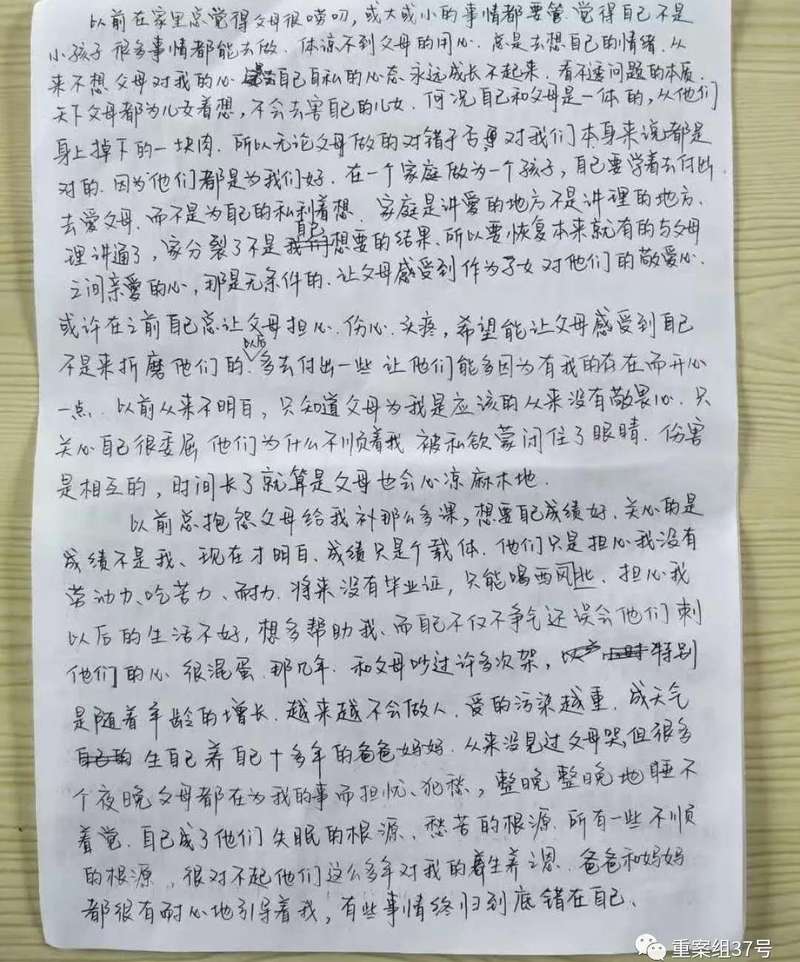 以前在家里总觉得父母很唠叨，或大或小的事情都要管.觉得自己不是
小孩子很多事情都能去做.体谅不到父母的用心.总是去想自己的情绪.从
来不想父母对我的心 自己自私的心态永远成长不起来.看不透问题的本质.
天下父母都为儿女着想，不会去害自己的儿女.何况自己和父母是一体的，从他们
身上掉下的一块肉.所以无论父母做的对错于否 对我们本身来说都是
对的.因为他们都是为我们好.在一个家庭做为一个孩子，自己要学着去付出.
去爱父母.而不是为自己的私利着想.家庭是讲爱的地方不是讲理的地方.
理讲通了，家分裂了不是自己想要的结果.所以要恢复本来就有的与父母
之间亲爱的心，那是无条件的.让父母感受到作为子女对他们的敬爱心.
或许在之前自己总让父母担心.伤心.头疼，希望能让父母感受到自己
不是来折磨他们的.以后多去付出一些 让他们能多因为有我的存在而开心
一点.以前从来不明白，只知道父母为我是应该的从来没有敬畏心.只
关心自己很委屈 他们为什么不顺着我 被私欲蒙闭住了眼睛.伤害
是相互的，时间长了就算是父母也会心凉麻木地.
以前总抱怨父母给我补那么多课，想要自己成绩好.关心的是
成绩不是我、现在才明白、成绩只是个载体.他们只是担心我没有
劳动力、吃苦力、耐力.将来没有毕业证，只能喝西北风.担心我
以后的生活不好，想多帮助我、而自己不仅不争气还误会他们刺
他们的心 很混蛋.那几年.和父母吵过许多次架，特别
是随着年龄的增长.越来越不会做人.爱的污染越重.成天气
生自己养自己十多年的爸爸妈妈.从来没见过父母哭，但很多
个夜晚父母都在为我的事而担忧、犯愁，整晚整晚地睡不
着觉.自己成了他们失眠的根源.愁苦的根源.所有一些不顺
的根源，很对不起他们这么多年对我的生养之恩.爸爸和妈妈
都很有耐心地引导着我，有些事情终归到底错在自己、
重案组37号